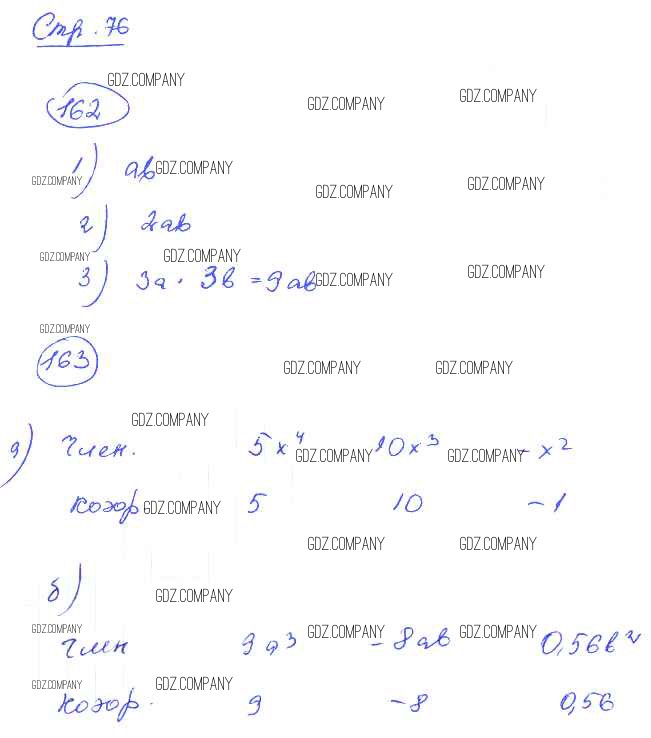 Стр. 76
GDZ.COMPANY
162 GDZ.COMPANY GDZ.COMPANY
1) ab GDZ.COMPANY
GDZ.COMPANY GDZ.COMPANY GDZ.COMPANY
2) 2ab
GDZ.COMPANY GDZ.COMPANY
3) 3a · 3b = 9ab GDZ.COMPANY GDZ.COMPANY
GDZ.COMPANY
163 GDZ.COMPANY GDZ.COMPANY
GDZ.COMPANY
а) Член. 5x⁴ GDZ.COMPANY 10x³ GDZ.COMPANY - x²
коэф GDZ.COMPANY 5 10 -1
GDZ.COMPANY GDZ.COMPANY
б) GDZ.COMPANY
GDZ.COMPANY
Член 9a³ GDZ.COMPANY -8ab GDZ.COMPANY 0,56b²
GDZ.COMPANY GDZ.COMPANY
коэф. 9 -8 0,56